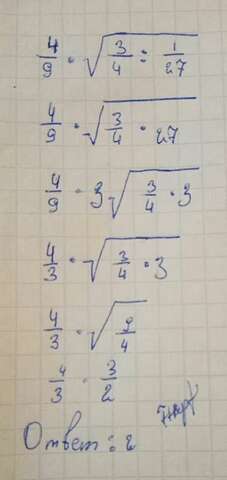 4/9 · √(3/4 : 1/27)
4/9 · √(3/4 · 27)
4/9 · 3√(3/4 · 3)
4/3 · √(3/4 · 3)
4/3 · √(9/4)
4/3 · 3/2
Ответ: 2